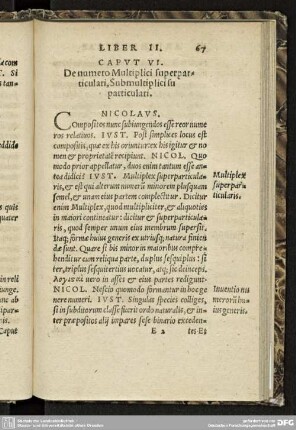 LIBER II. 67
CAPVT VI.
De numero Multiplici superpar-
ticulari, Submultiplici su
particulari.
NICOLAVS.
Compositos nunc subiungendos esse reor nume
ros relatiuos. IVST. Post simplices locus est
compositis, quæ ex his oriuntur: ex bis igitur & no
men & proprietatē recipiunt. NICOL. Quo
modo prior appellatur, duos enim tantum esse an-
tea didici? IVST. Multiplex superparticula-
ris, & est qui alterum numerū minorem plusquam
semel, & unam eius partem complectitur. Dicitur
enim Multiplex, quod multipliciter, & aliquoties
in maiori contineatur: dicitur & superparticula-
ris, quod semper unum eius membrum supersit,
Itaq; forma huius generis ex utriusq; natura fincti
da sunt. Quare si bis minor in maiori bus compre-
henditur cum reliqua parte, duplus sesquiplus: si
ter, triplus sesquitertius uocatur, atq; sic deinceps.
uero in asses & eius partes redigunt.
NICOL. Nescio quomodo formantur in hoc ge
nere numeri. IVST. Singulas species colliges,
si in subditorum classe fueris ordo naturalis, & in-
ter præpositos alij impares sese binario exceden-
E 2 tes: Et
Multiplex
superparti
ticularis.
Inuentio nu
merorū hu
ius generis.